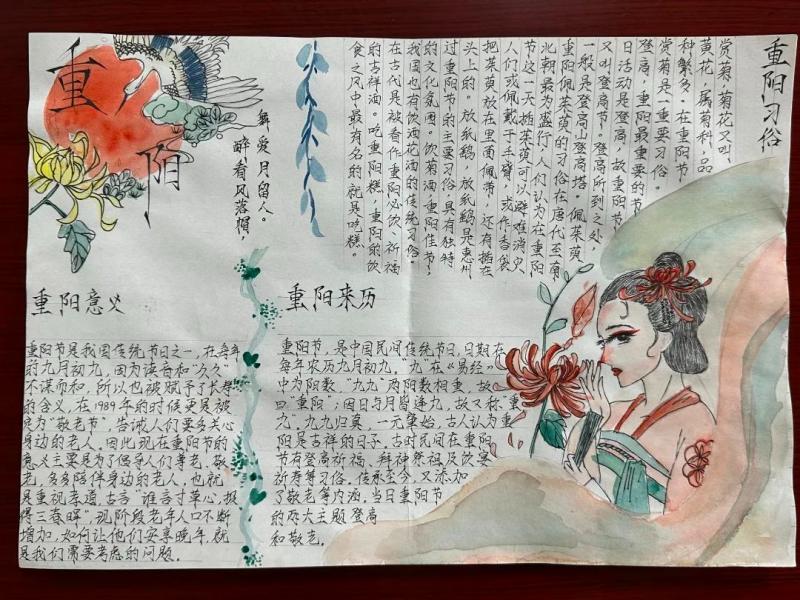 重阳
醉看风落帽,
舞爱月留人。
重阳习俗
赏菊,菊花又叫、
黄花,属菊科,品
种繁多。在重阳节
赏菊是一重要习俗。
登高,重阳最重要的节
日活动是登高,故重阳节
又叫登高节。登高所到之处
一般是登高山登高塔。佩茱萸
重阳佩茱萸的习俗在唐代至南
北朝最为盛行,人们认为在重阳
节这一天插茱萸可以避难消灾
人们或佩戴于手臂,或作香袋
把茱萸放在里面佩带,还有插在
头上的。放纸鹞,放纸鹞是惠州
过重阳节的主要习俗具有独特
的文化氛围。饮菊酒,重阳佳节,
我国也有饮酒花酒的传统习俗。
在古代是被看作重阳必饮、祈福
的吉祥酒。吃重阳糕,重阳的饮
食之风中最有名的就是吃糕。
重阳意义
重阳节是我国传统节日之一,在每年
的九月初九,因为读音和“久久”
不谋而和,所以也被赋予了长寿
的含义,在1989年的时候更是被
定为“敬老节”,告诫人们要多关心
身边的老人。因此,现在重阳节的
意义主要是为了倡导人们尊老、敬
老,多多陪伴身边的老人,也就
是重视孝道,古言“谁言寸草心,报
得三春晖”,现阶段老年人口不断
增加,如何让他们安享晚年,就
是我们需要考虑的问题。
重阳来历
重阳节,是中国民间传统节日,日期在
每年农历九月初九,“九”在《易经》
中为阳数,“九九”两阳数相重,故
曰“重阳”;因日与月皆逢九,故又称“重
九”。九九归真,一元肇始,古人认为重
阳是吉祥的日子。古时民间在重阳
节有登高祈福、拜神祭祖及饮宴
祈寿等习俗。传承至今,又添加
了敬老等内涵,当日重阳节
的两大主题登高
和敬老。